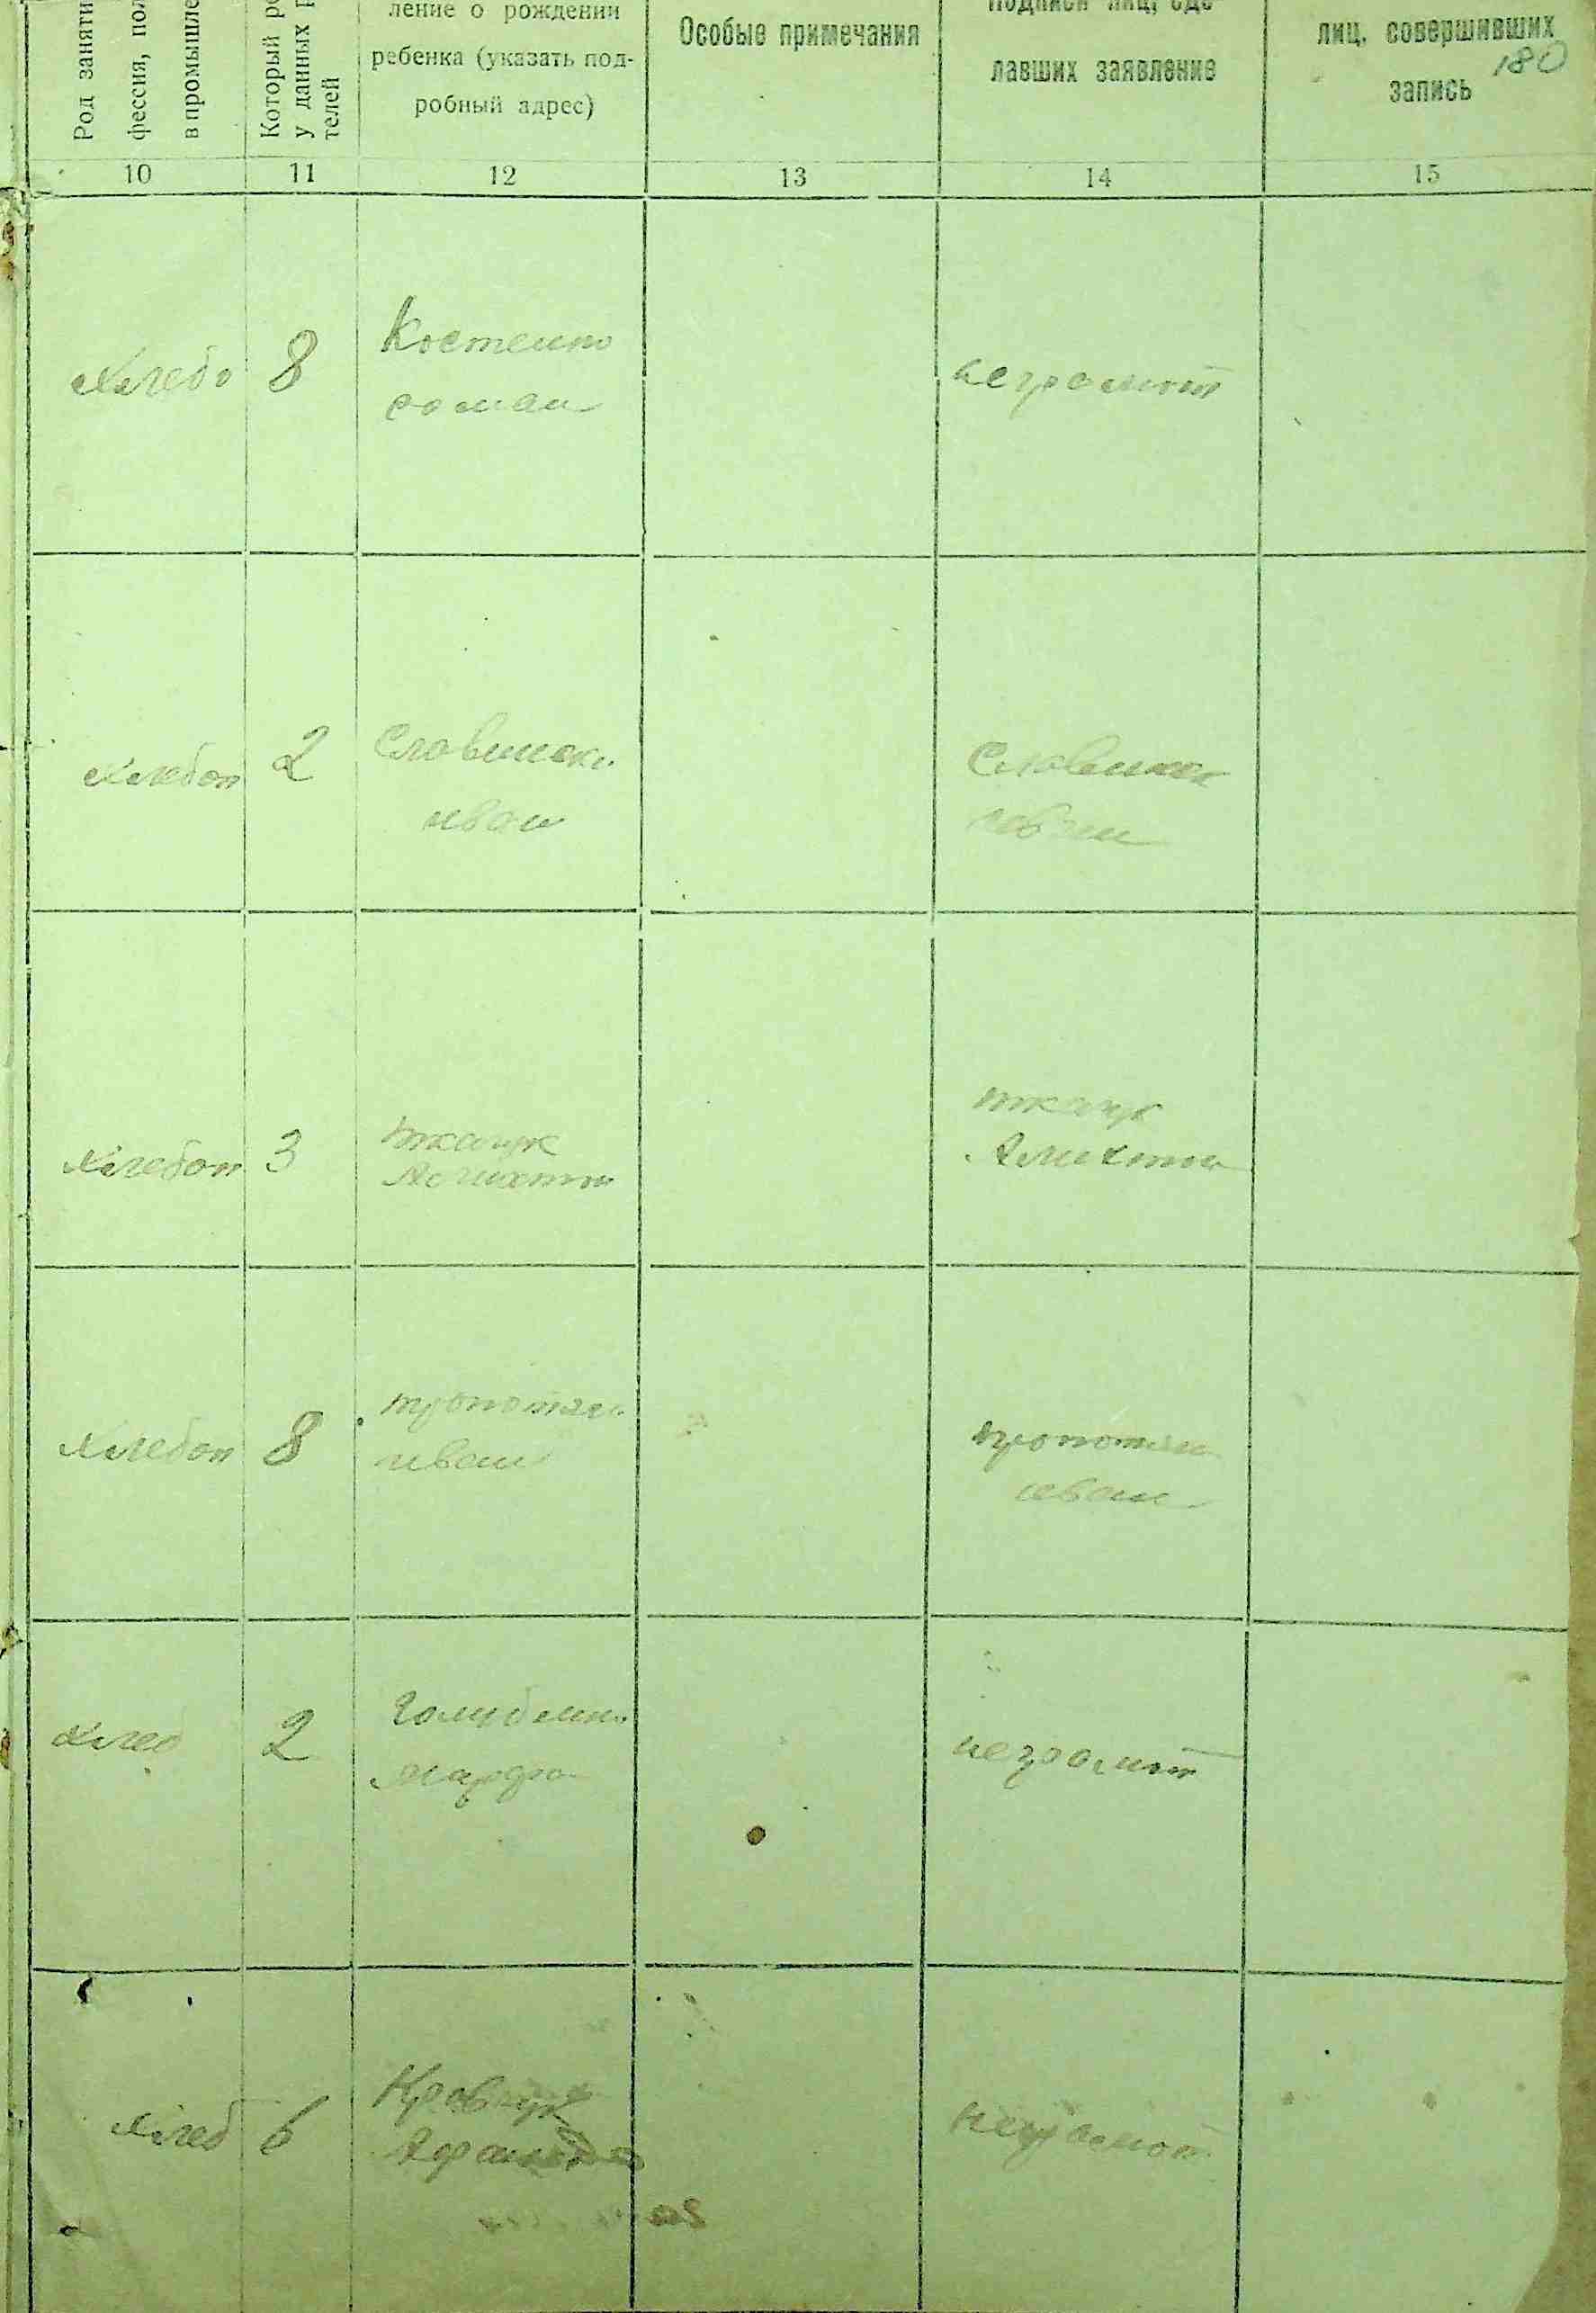 Род заняти
фессия, пол
в промышле
Который ре
у данных р
телей
ление о рождении
ребенка (указать под-
робный адрес)
Особые примечания
Подписи лиц, сде-
лавших заявление
лиц, совершивших
запись
180
10 11 12 13 14 15
хлебо 8 Костенко
роман
неграмот
хлебоп 2 Словински
иван
Словински
иван
хлебоп 3 ткачук
ткачук
хлебоп 8
иван
иван
хлеб 2
марфа
неграмот
хлеб 6 Кравчук
неграмот